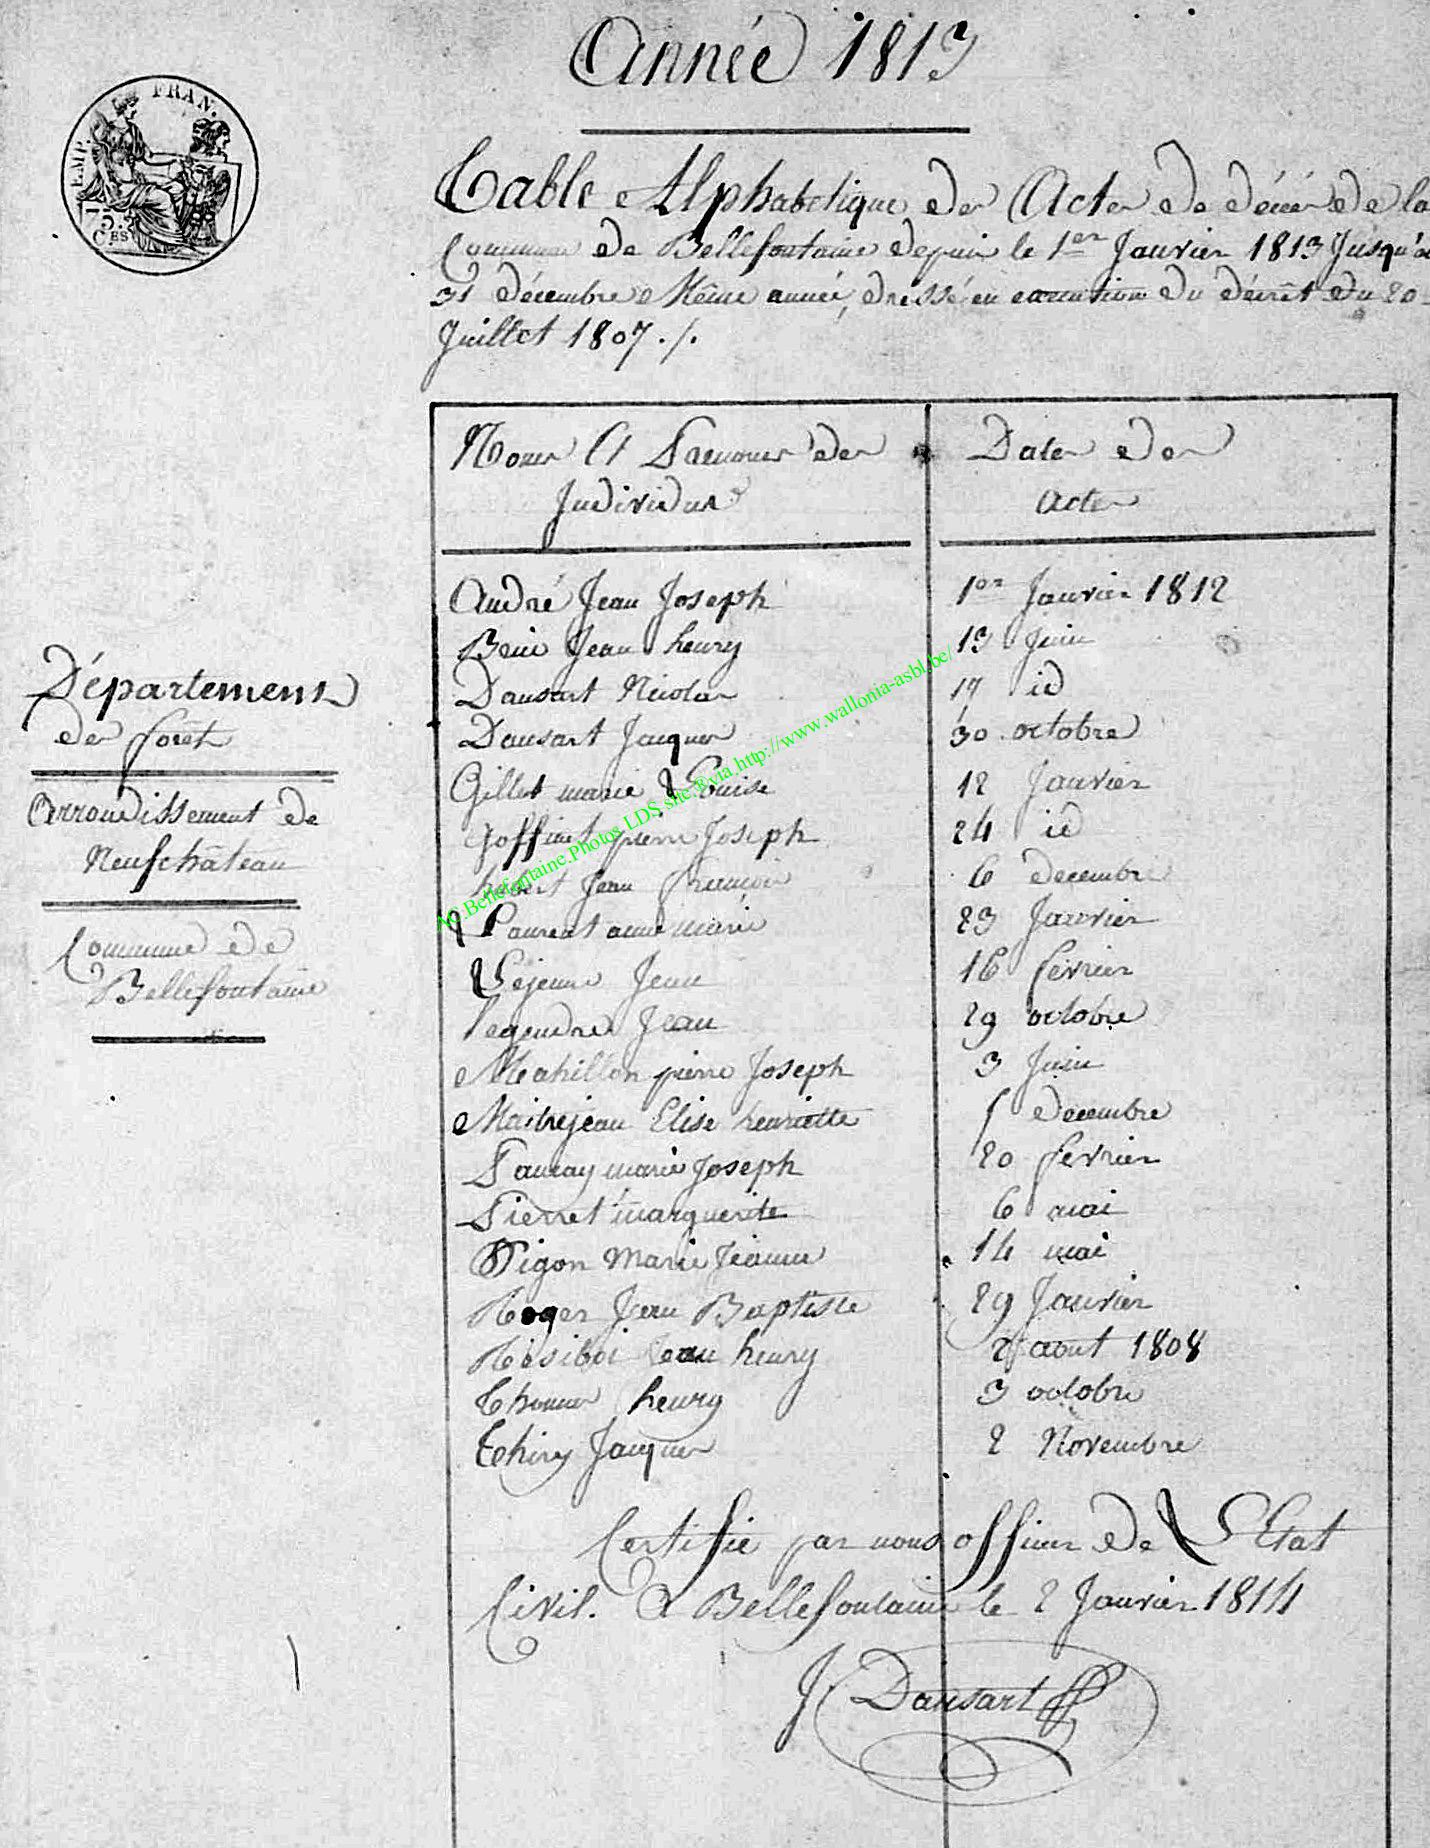 Année 1813
EMP. FRAN.
75
CES
Table Alphabetique des Actes de décès de la
Commune de Bellefontaine depuis le 1er Janvier 1813 Jusqu'au
31 décembre Même année, dressé en execution du décrêt du 20
Juillet 1807 ./.
Noms Et Prenoms des
Individus
Dates des
Actes
André Jean Joseph 1er Janvier 1812
Jean henry 13 Juin
Dansart Nicolas 17 id
Dansart Jacques 30 octobre
Gillet marie Louise 12 Janvier
Goffinet pierre Joseph 24 id
hubert Jean francois 6 decembre
Laurent anne marie 23 Janvier
Lejeune Jean 16 fevrier
legendre Jean 29 octobre
Mahillon pierre Joseph 3 Juin
Maitrejean Elise henriette decembre
marie Joseph 20 fevrier
Pierret marguerite 6 mai
Pigon Marie Jeanne 14 mai
Roger Jean Baptiste 29 Janvier
Résiboi Jean henry 2 aout 1808
Thomas henry 3 octobre
Thiry Jacques 2 Novembre
Département
des forêts
Arrondissement de
Neufchâteau
Commune de
Bellefontaine
Certifié par nous officier de L'Etat
Civil. A Bellefontaine le 2 Janvier 1814
J Dansart
AC.Bellefontaine.Photos LDS.site.®via.http://www.wallonia-asbl.be/